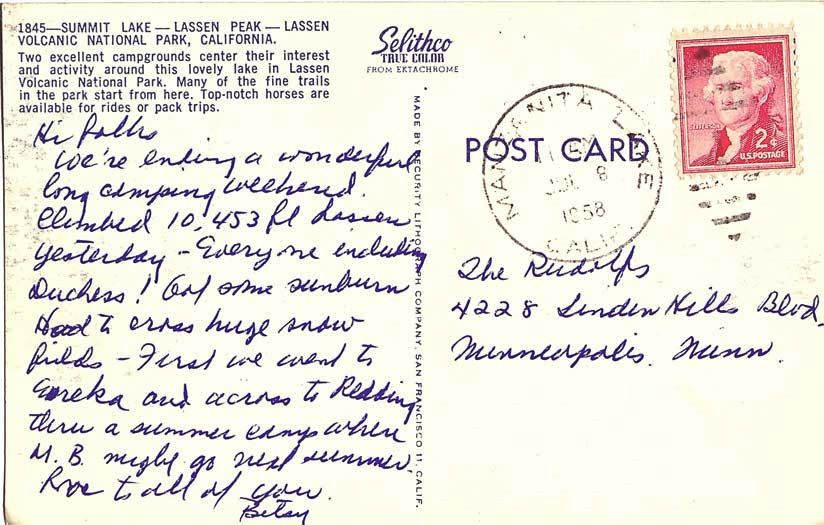 1845—SUMMIT LAKE — LASSEN PEAK — LASSEN
VOLCANIC NATIONAL PARK, CALIFORNIA.
Two excellent campgrounds center their interest
and activity around this lovely lake in Lassen
Volcanic National Park. Many of the fine trails
in the park start from here. Top-notch horses are
available for rides or pack trips.
Hi folks
We're ending a wonderful
long camping weekend.
Climbed 10,453 ft Lassen
yesterday - Everyone including
Duchess! Got some sunburn
Had to cross huge snow
fields - First we went to
Eureka and across to Redding
thru a summer camp where
M. B. might go next summer.
Love to all of you.
Betsy
Selithco
TRUE COLOR
FROM EKTACHROME
MADE BY SECURITY LITHOGRAPH COMPANY, SAN FRANCISCO 11, CALIF.
POST CARD
MANZANITA LAKE
JUL 8
1958
CALIF
JEFFERSON
2¢
U.S. POSTAGE
The Rudolfs
4228 Linden Hills Blvd.
Minneapolis. Minn.